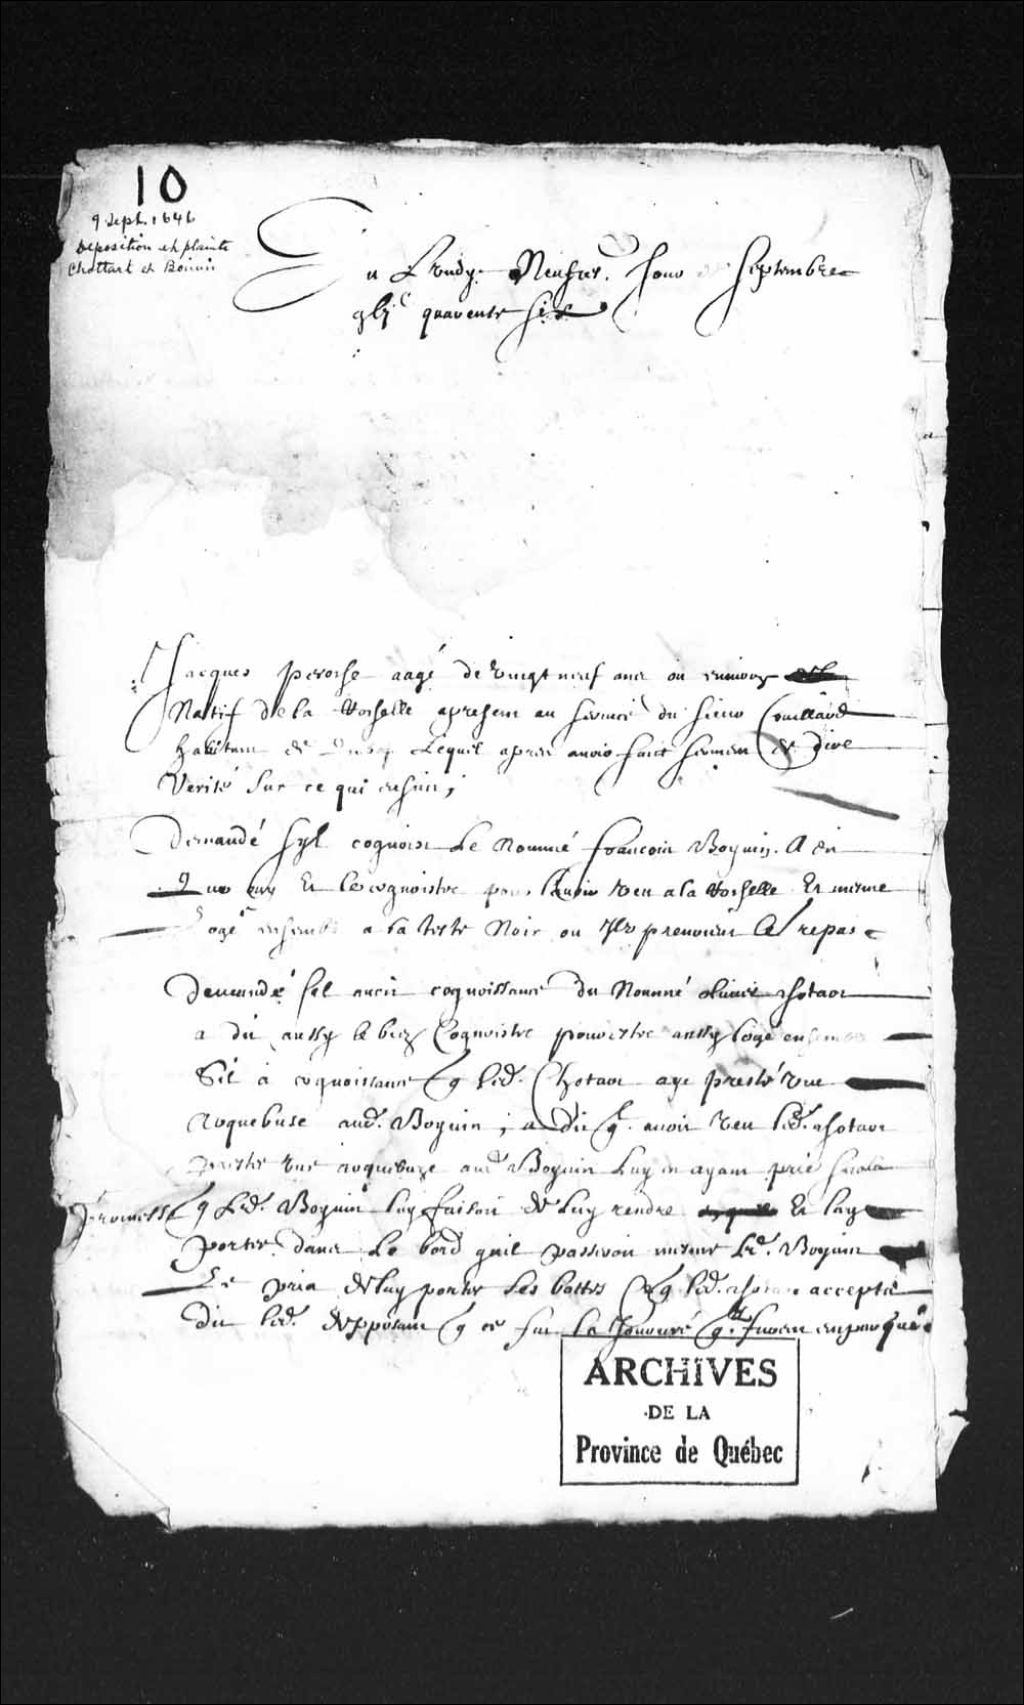 10
9 Sept. 1646
Deposition et plainte
Chottart et Boivin
Du Lundy Neufies. Jour Septembre
gbjc quarente six
Jacques peroche aagé de vingt neuf ans ou environ
Natif de la Rochelle apresent au service du sieur Couillard
habitant de Lequel apres avoir faict sermen de dire
Verité sur ce qui ensuit,
Demandé syl cognoist Le Nommé françois Boyuin. A dit
Et le cognoistre pour lavoir veu a la Rochelle Et mesme
logé ensemble a la teste Noir ou Ilz prenoient les repas
Demandé sil auoit cognoissance du Nommé oliuier chotart
a dit aussy le bien Cognoistre pour estre aussy logé ensemble
Sil a cognoissance q led. Chotart aye presté vne
arquebuse aud. Boyuin, a dit q. auoir veu led. chotart
prester vne arquebuze aud Boyuin Luy en ayant prié
promesse q Led. Boyuin luy faisoit de Luy rendre Et
porter dans Le bord quil passeroit mesme Led. Boyuin
Le pria de luy porter ses bottes Ce q led. chotart accepta
Dit led. depposant q ce fut la q. furent enparqué
ARCHIVES
DE LA
Province de Québec